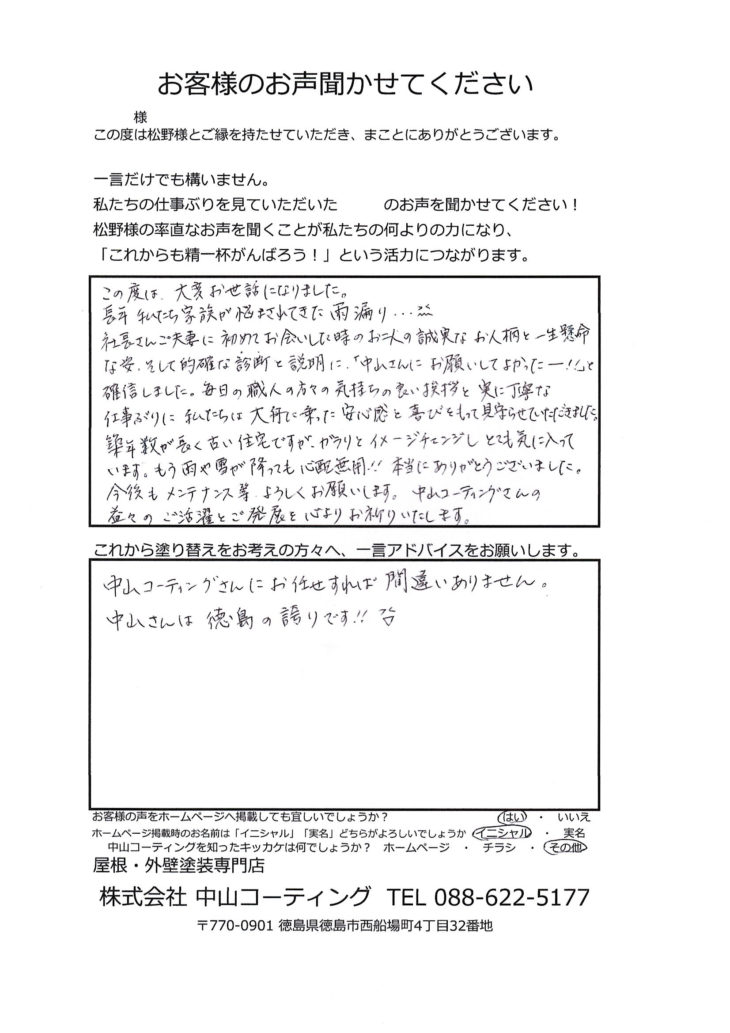 お客様のお声聞かせてください
様
この度は松野様とご縁を持たせていただき、まことにありがとうございます。
一言だけでも構いません。
私たちの仕事ぶりを見ていただいた　　　のお声を聞かせてください！
松野様の率直なお声を聞くことが私たちの何よりの力になり、
「これからも精一杯がんばろう！」という活力につながります。
この度は、大変お世話になりました。
長年 私たち家族が悩まされてきた雨漏り...
社長さんご夫妻に初めてお会いした時のお二人の誠実なお人柄と一生懸命
な姿、そして的確な診断と説明に、「中山さんにお願いしてよかったー!!」と
確信しました。毎日の職人の方々の気持ちの良い挨拶と実に丁寧な
仕事ぶりに 私たちは大舟に乗った安心感と喜びをもって見守らせていただきました。
築年数が長く古い住宅ですが、ガラリとイメージチェンジしとても気に入って
います。もう雨や雪が降っても心配無用!! 本当にありがとうございました。
今後もメンテナンス等、よろしくお願いします。中山コーティングさんの
益々のご活躍とご発展を心よりお祈りいたします。
これから塗り替えをお考えの方々へ、一言アドバイスをお願いします。
中山コーティングさんにお任せすれば間違いありません。
中山さんは徳島の誇りです!!
お客様の声をホームページへ掲載しても宜しいでしょうか？　はい ・ いいえ
ホームページ掲載時のお名前は「イニシャル」「実名」どちらがよろしいでしょうか　イニシャル ・ 実名
中山コーティングを知ったキッカケは何でしょうか？　ホームページ ・ チラシ ・ その他
屋根・外壁塗装専門店
株式会社 中山コーティング　TEL 088-622-5177
〒770-0901 徳島県徳島市西船場町4丁目32番地